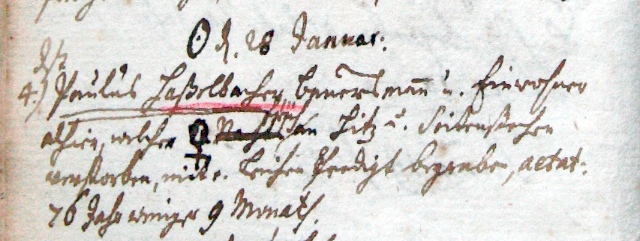 ☉ d. 28 Januar:
dst
4.) Paulus Haßelbacher, Bauersmann u. Einwohner
alhier, welcher an Hitz u. Seitenstechen
verstorben, mit e. Leichen Predigt begraben, aetat:
76 Jahr weniger 9 Monath.